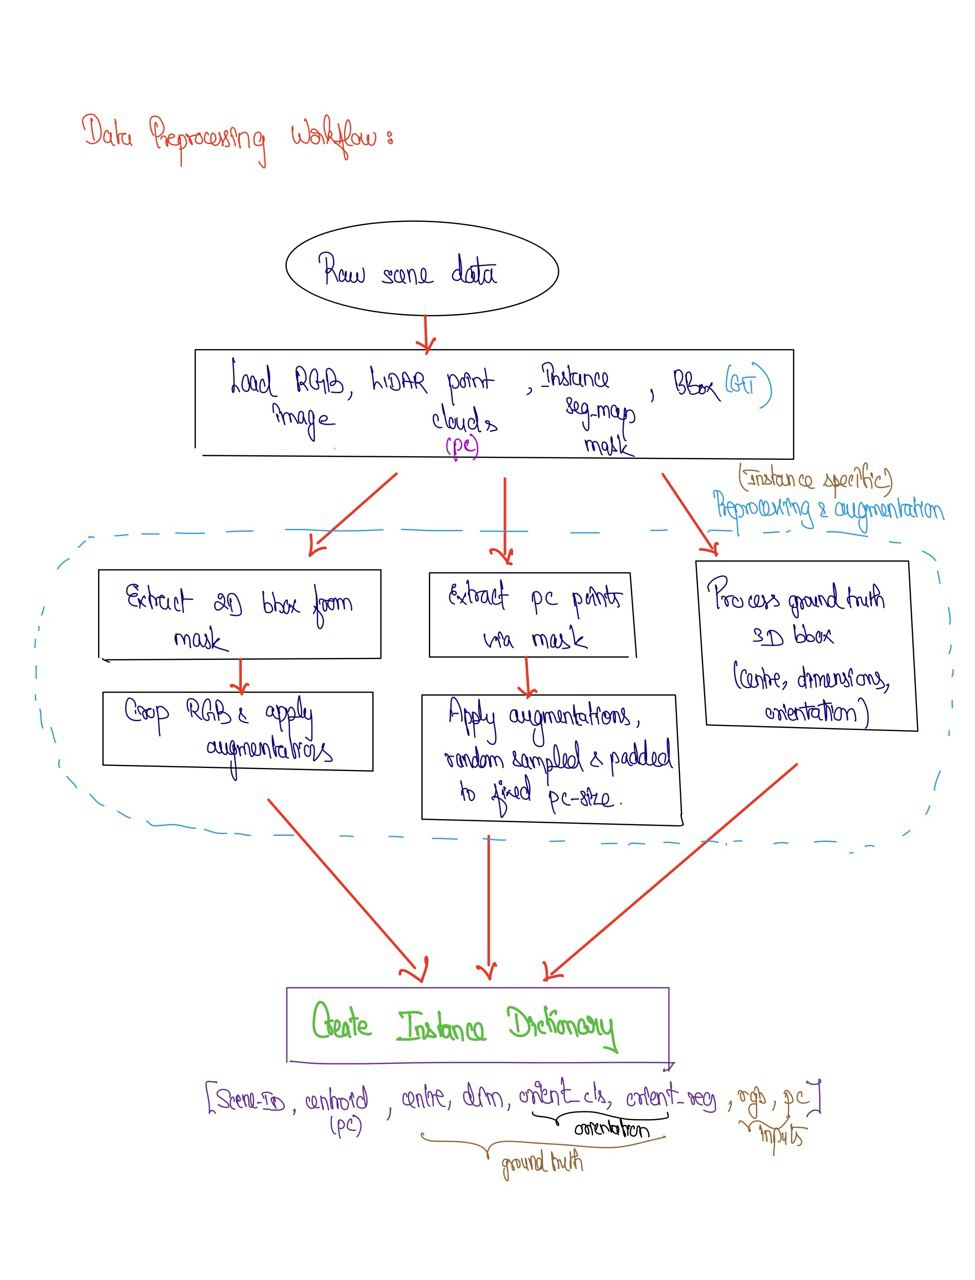 Data Preprocessing Workflow:
Raw scene data
Load RGB image, LiDAR point clouds (pc), Instance seg-map mask, Bbox (GT)
(Instance specific)
Preprocessing & augmentation
Extract 2D bbox from
mask
Crop RGB & apply
augmentations
Extract pc points
via mask
Apply augmentations,
random sampled & padded
to fixed pc-size.
Process ground truth
3D bbox
(centre, dimensions,
orientation)
Create Instance Dictionary
[Scene-ID, centroid, centre, dim, orient_cls, orient_reg, rgb, pc]
(pc)
orientation
inputs
ground truth